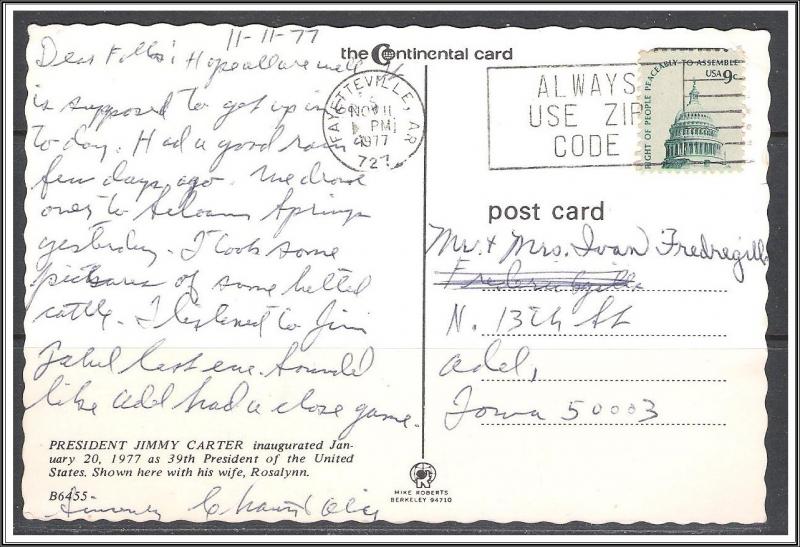 11-11-77
the Continental card
Dear Folks: Hope all are well
is supposed to get up in
to day. Had a good rain
few days ago. We drove
over to Siloam Springs
yesterday. I took some
pictures of some belted
cattle. I listened to Jim
last eve. Sounded
like Adel had a close game.
PRESIDENT JIMMY CARTER inaugurated Jan-
uary 20, 1977 as 39th President of the United
States. Shown here with his wife, Rosalynn.
B6455
Sincerely
FAYETTEVILLE, AR
NOV 11
PM
1977
727
ALWAYS
USE ZIP
CODE
RIGHT OF PEOPLE PEACEABLY TO ASSEMBLE
USA 9c
post card
Mr. + Mrs. Ivan Fredregill
N. 13th St
Adel,
Iowa 50003
MIKE ROBERTS
BERKELEY 94710